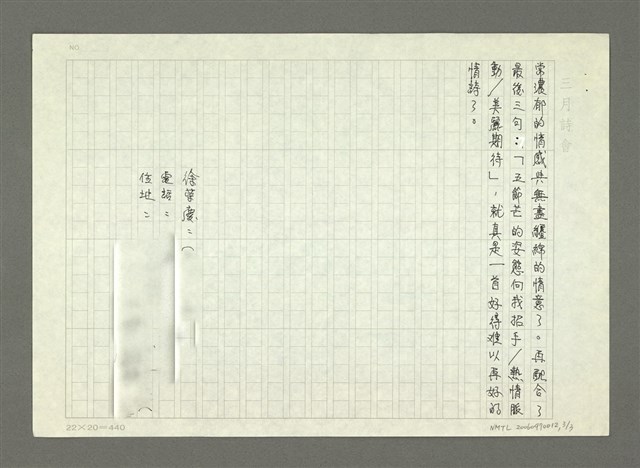 三月詩會
常濃郁的情感與無盡纏綿的情意了。再配合了
最後三句：「五節芒的姿態向我招手／熱情脈
動／美麗期待」，就真是一首好得難以再好的
情詩了。
電話：
住地：
NO.
22×20=440
NMTL 20060990012, 3/3